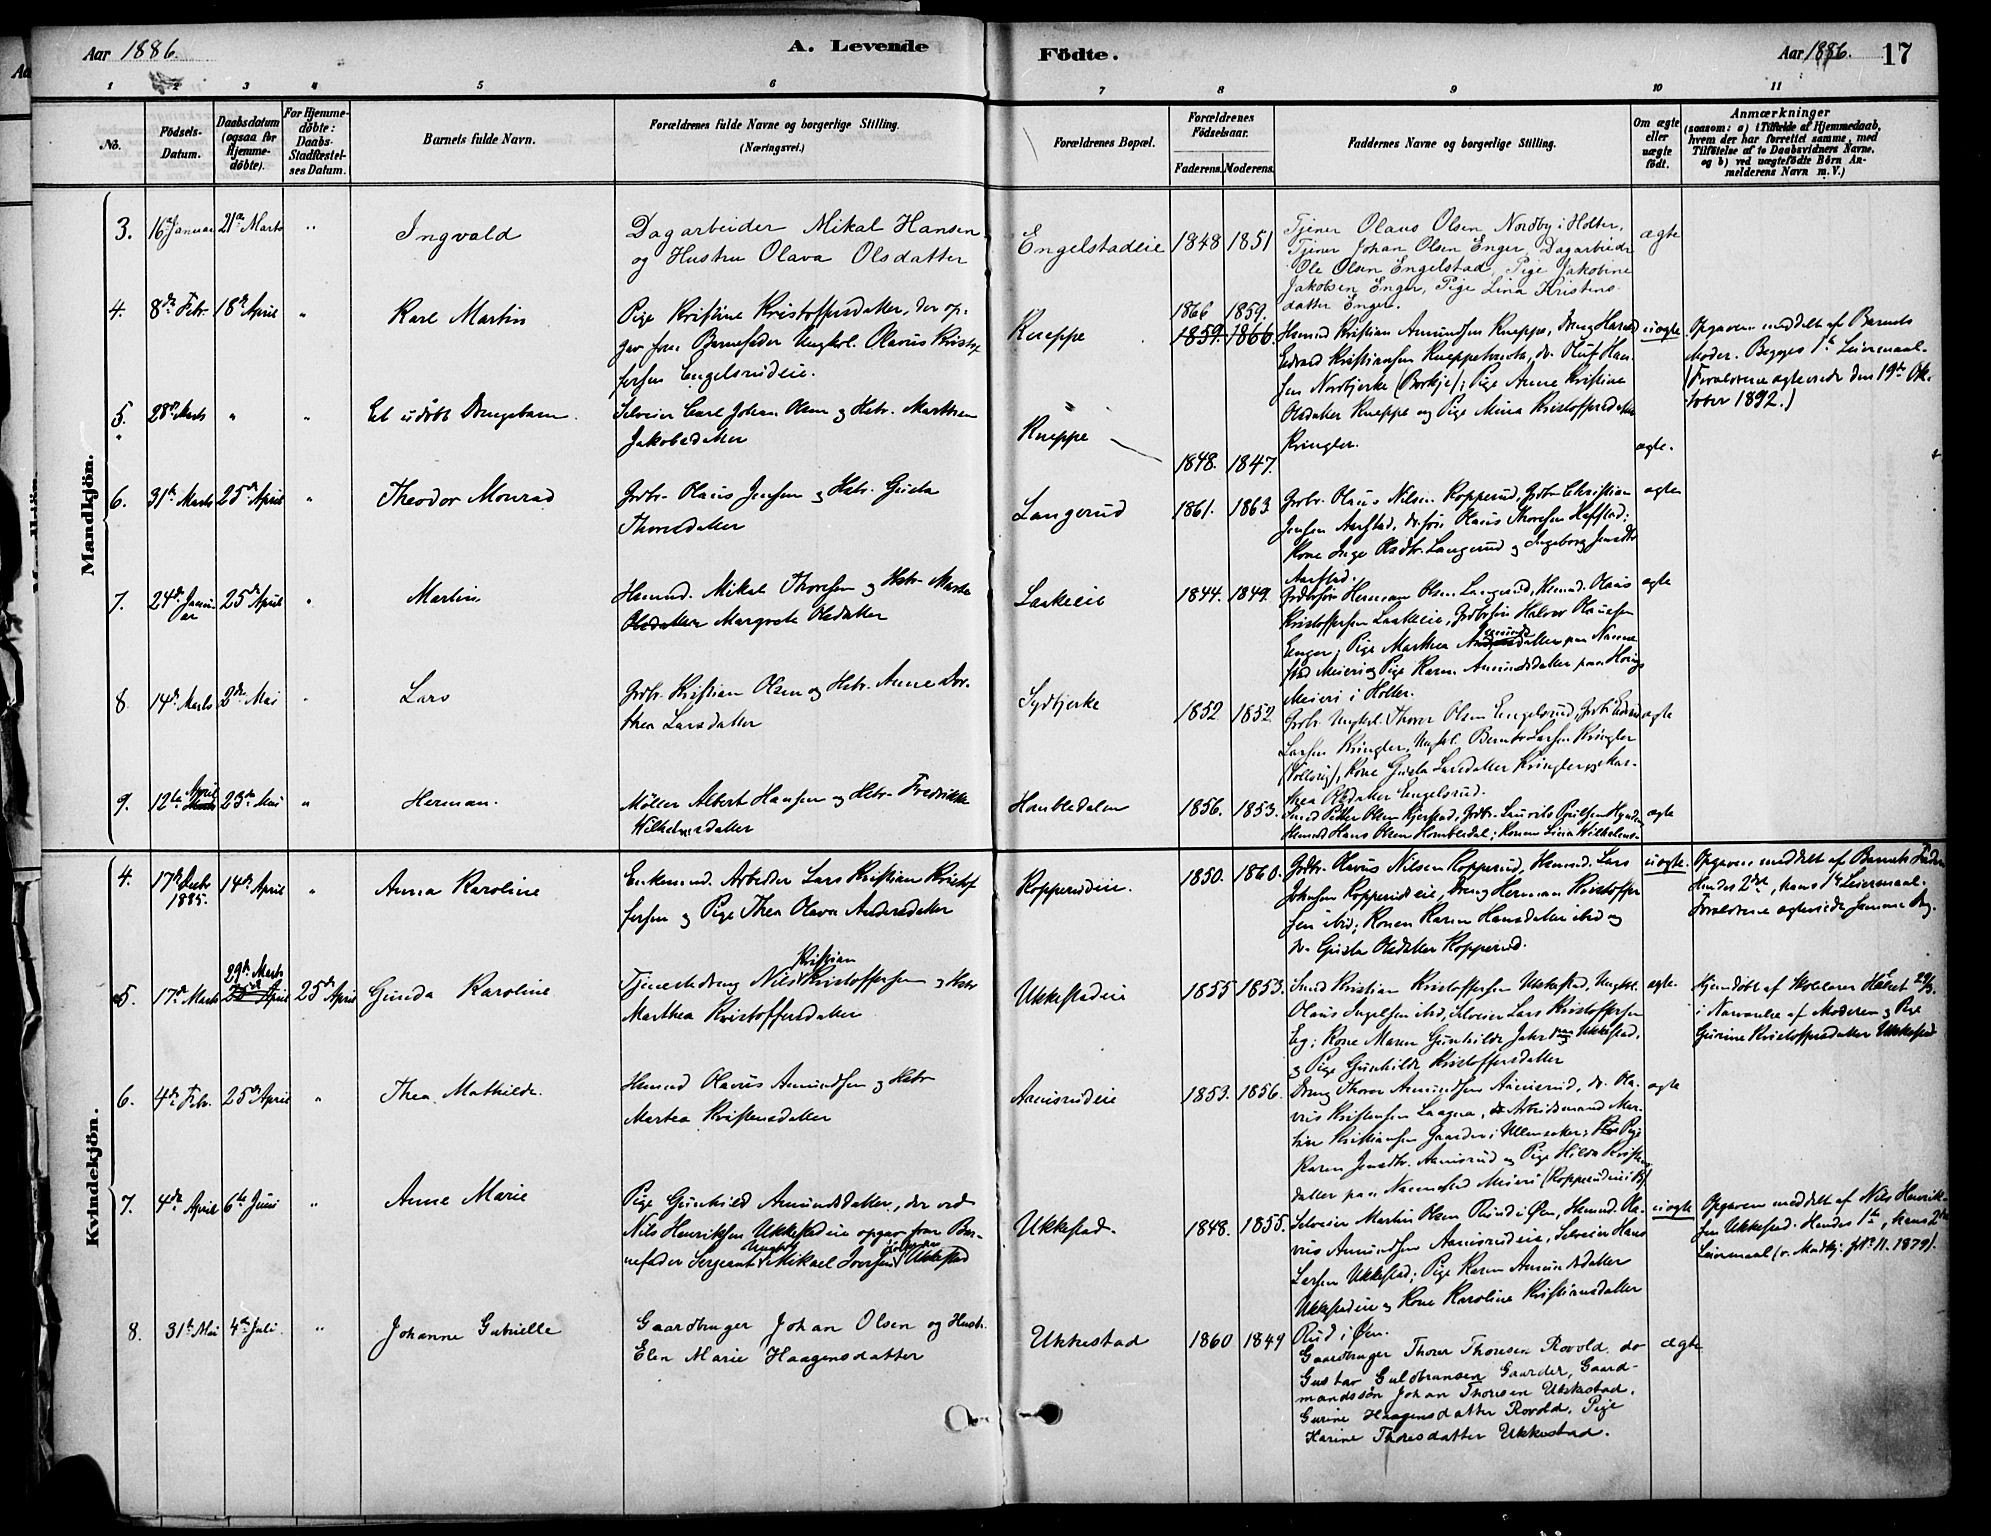 Aar 1886.
A. Levende
Födte.
Aar 1886.
17
1 2 3 4 5 6 7 8 9 10 11
No.
Födsels-Datum.
Daabsdatum (ogsaa for Hjemme-döbte).
For Hjemme-döbte: Daabs-Stadfæstel-ses Datum.
Barnets fulde Navn.
Forældrenes fulde Navne og borgerlige Stilling. (Næringsvei.)
Forældrenes Bopæl.
Forældrenes Födselsaar.
Faderens. Moderens.
Faddernes Navne og borgerlige Stilling.
Om ægte eller uægte födt.
Anmærkninger
(saasom: a) i Tilfælde af Hjemmedaab, hvem der har forrettet samme, med Tilföielse af to Daabsvidners Navne, og b) ved uægtefödte Börn An-melderens Navn m. V.)
Mandkjön.
3. 16de Januar 21de Marts " Ingvald
Dagarbeider Mikal Hansen
og Hustru Olava Olsdatter
Engelstadeie 1848 1851
Tjener Olaus Olsen Nordby i Holter,
Tjener Johan Olsen Enger, Dagarbeider
Ole Olsen Engelstad, Pige Jakobine
Jakobsen Enger, Pige Lina Kristens-
datter Enger.
ægte
4. 8de Febr. 18de April " Karl Martin
Pige Kristine Kristoffersdatter, der op-
gav som Barnefader Ungkrl. Olavus Kristof-
fersen Engelsrudeie.
Kneppe
1866 1859.
1859. 1866
Hemnd Kristian Amundsen Kneppe, Dreng Harald
Edvard Kristiansen Kneppe, do. Oluf Han-
sen Nordbjerke; Pige Anne Kristine
Olsdatter Kneppe og Pige Mina Kristoffersdatter
Kringler.
uægte
Opgaven meddelt af Barnets
Moder. Begges 1te Leiermaal.
(Forældrene ægteviede den 19de Ok-
tober 1892.)
5. 28de Marts " " Et udöbt Drengebarn.
Selveier Carl Johan Olsen og Hstr. Marthea
Jakobsdatter
Kneppe 1848. 1847. ægte.
6. 31te Marts 25de April " Theodor Monrad
Grdbr. Olaus Jensen og Hstr. Gusta
Thorsdatter
Langerud 1861. 1863
Grdbr. Olaus Nilsen Kopperud, Grdbr. Christian
Jensen Aarstad, Olaus Thoresen
Kone Inge Olsdtr. Langerud og Ingeborg Jensdtr
Aarstad.
ægte
7. 24de Januar 25de April " Martin
Hemnd. Mikal Thoresen og Hstr. Marte
Olsdatter Margrete Olsdatter
Laakeeie 1844. 1849.
Herman Olsen Langerud, Hemnd. Olaus
Kristoffersen Laakeeie, Halvor Olausen
Enger; Pige Marthea Amundsdatter paa Namne-
stad Meieri og Pige Karen Amundsdatter paa
Meieri i Holter.
ægte
8 14de Marts 2den Mai " Lars
Grdbr. Kristian Olsen og Hstr. Anne Dor-
thea Larsdatter
Sydbjerke 1852 1852
Ungkl. Thorer Olsen Engelsrud, Edvard
Larsen Kringler, Ungkl. Bernt Larsen Kringler
Kone Gusta Larsdatter Kringler og Mar-
thea Olsdatter Engelsrud.
ægte
9. 12te April Marts 23de Mai " Herman.
Möller Albert Hansen og Hstr. Fredrikke
Wilhelmsdatter
Hombledalen 1856. 1853.
Smed Petter Olsen Kjerstad, Grdbr. Laurits Poulsen
Hemnd Hans Olsen Hombledal; Konen Lina Wilhelms-
ægte
Kvindekjön.
4. 17de Decbr 1885. 14de April " Anna Karoline
Enkemnd. Arbeider Lars Kristian Kristof-
fersen og Pige Thea Olava Andersdatter
Kopperudeie. 1850. 1860.
Grdbr. Olavus Nilsen Kopperud, Hemnd. Lars
Johnsen Kopperudeie, Dreng Herman Kristoffer-
sen ibid; Konen Karen Hansdatter ibid og
do. Gusta Olsdatter Kopperud.
uægte.
Opgaven meddelt af Barnets Fader.
Hendes 2det, hans 1te Leiermaal.
Forældrene ægteviede samme Dag.
5. 17de Marts 29de Marts 25de April 25de April Gunda Karoline
Tjenestedreng Nils Kristian Kristoffersen og Hstr
Marthea Kristoffersdatter
Ukkestadeie 1855 1853.
Smed Kristian Kristoffersen Ukkestad, Ungkl.
Olaus Ingelsen ibid, Selveier Lars Kristoffersen
Eg; Kone Maren Gunhilde Jahr paa Ukkestad,
og Pige Gunhilde Kristoffersdatter
ægte.
Hjemdöbt af Skolelærer 29/3.
i Nærværelse af Moderen og Pige
Gurine Kristoffersdatter Ukkestad
6. 4de Febr. 25de April " Thea Mathilde.
Hemnd Olavus Amundsen og Hstr
Martea Kristensdatter
Aamisrudeie 1853. 1856.
Dreng Thorer Amundsen Aamisrud, do. Ola-
vus Kristensen Laagna, Arbeidsmand Mar-
tin Kristiansen Gaarder i Ullensaker; Pige
Karen Jensdtr. Aamisrud og Pige Hilda Kristens-
datter paa Namnestad Meieri (Kopperudeie)
ægte
7. 4de April 6te Juni " Anne Marie
Pige Gunhild Amundsdatter, der ved
Nils Henriksen Ukkestadeie opgav som Bar-
nefader Sergeant Ungkrl Mikael Iversen Ukkestad
Ukkestad. 1848. 1855.
Selveier Martin Olsen Rud i Öm, Hemnd. Ola-
vus Amundsen Aamisrudeie, Selveier Hans
Larsen Ukkestad; Pige Karen Amundsdatter
Ukkestadeie og Kone Karoline Kristiansdatter
Rud i Öm.
uægte
Opgaven meddelt af Nils Henrik-
sen Ukkestad. Hendes 1te, hans 2det
Leiermaal (v. Madkj. No. 11. 1879).
8. 31te Mai 4de Juli. " Johanne Gabrielle
Gaardbruger Johan Olsen og Hustr.
Elen Marie Haagensdatter
Ukkestad 1860 1849
Gaardbruger Thorer Thoresen Rovold, do
Gustav Guldbransen Gaarder, Gaard-
mandssön Johan Thoresen Ukkestad.
Gurine Haagensdatter Rovold, Pige
Karine Thoresdatter Ukkestad.
ægte